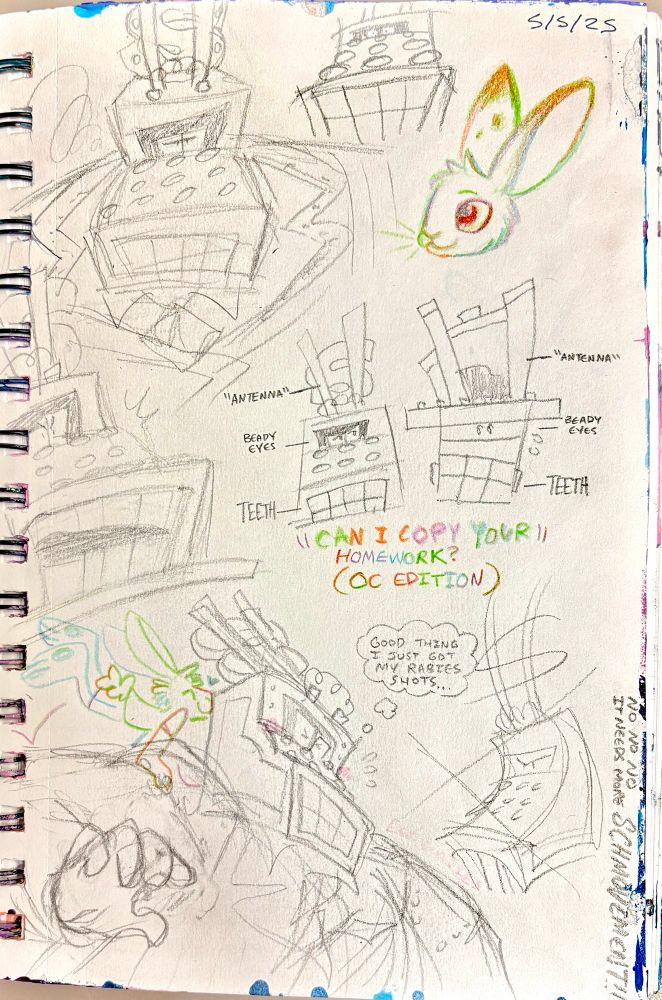 5/5/25
"ANTENNA"
BEADY
EYES
TEETH
"ANTENNA"
BEADY
EYES
TEETH
"CAN I COPY YOUR"
HOMEWORK?
(OC EDITION)
GOOD THING
I JUST GOT
MY RABIES
SHOTS...
NO NO NO
IT NEEDS MORE SCHMOOVEMENT!!